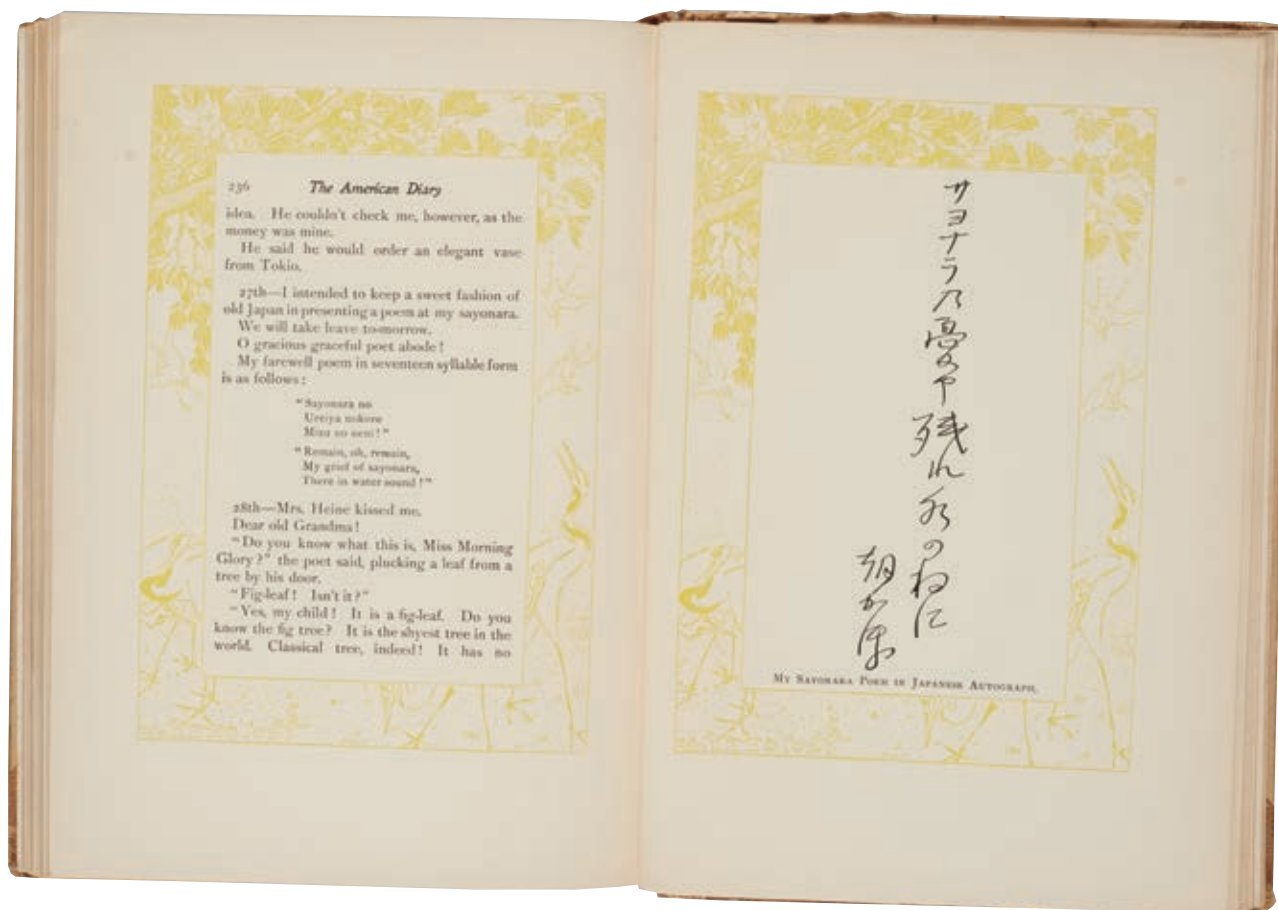 236 The American Diary
idea. He couldn't check me, however, as the
money was mine.
He said he would order an elegant vase
from Tokio.
27th—I intended to keep a sweet fashion of
old Japan in presenting a poem at my sayonara.
We will take leave to-morrow.
O gracious graceful poet abode!
My farewell poem in seventeen syllable form
is as follows:
"Sayonara no
Ureiya nokore
Mizu no neni!"
"Remain, oh, remain,
My grief of sayonara,
There in water sound!"
28th—Mrs. Heine kissed me.
Dear old Grandma!
"Do you know what this is, Miss Morning
Glory?" the poet said, plucking a leaf from a
tree by his door.
"Fig-leaf! Isn't it?"
"Yes, my child! It is a fig-leaf. Do you
know the fig tree? It is the shyest tree in the
world. Classical tree, indeed! It has no
サヨナラ乃憂ひや残れ水のねに
朝か保
My Sayonara Poem in Japanese Autograph.